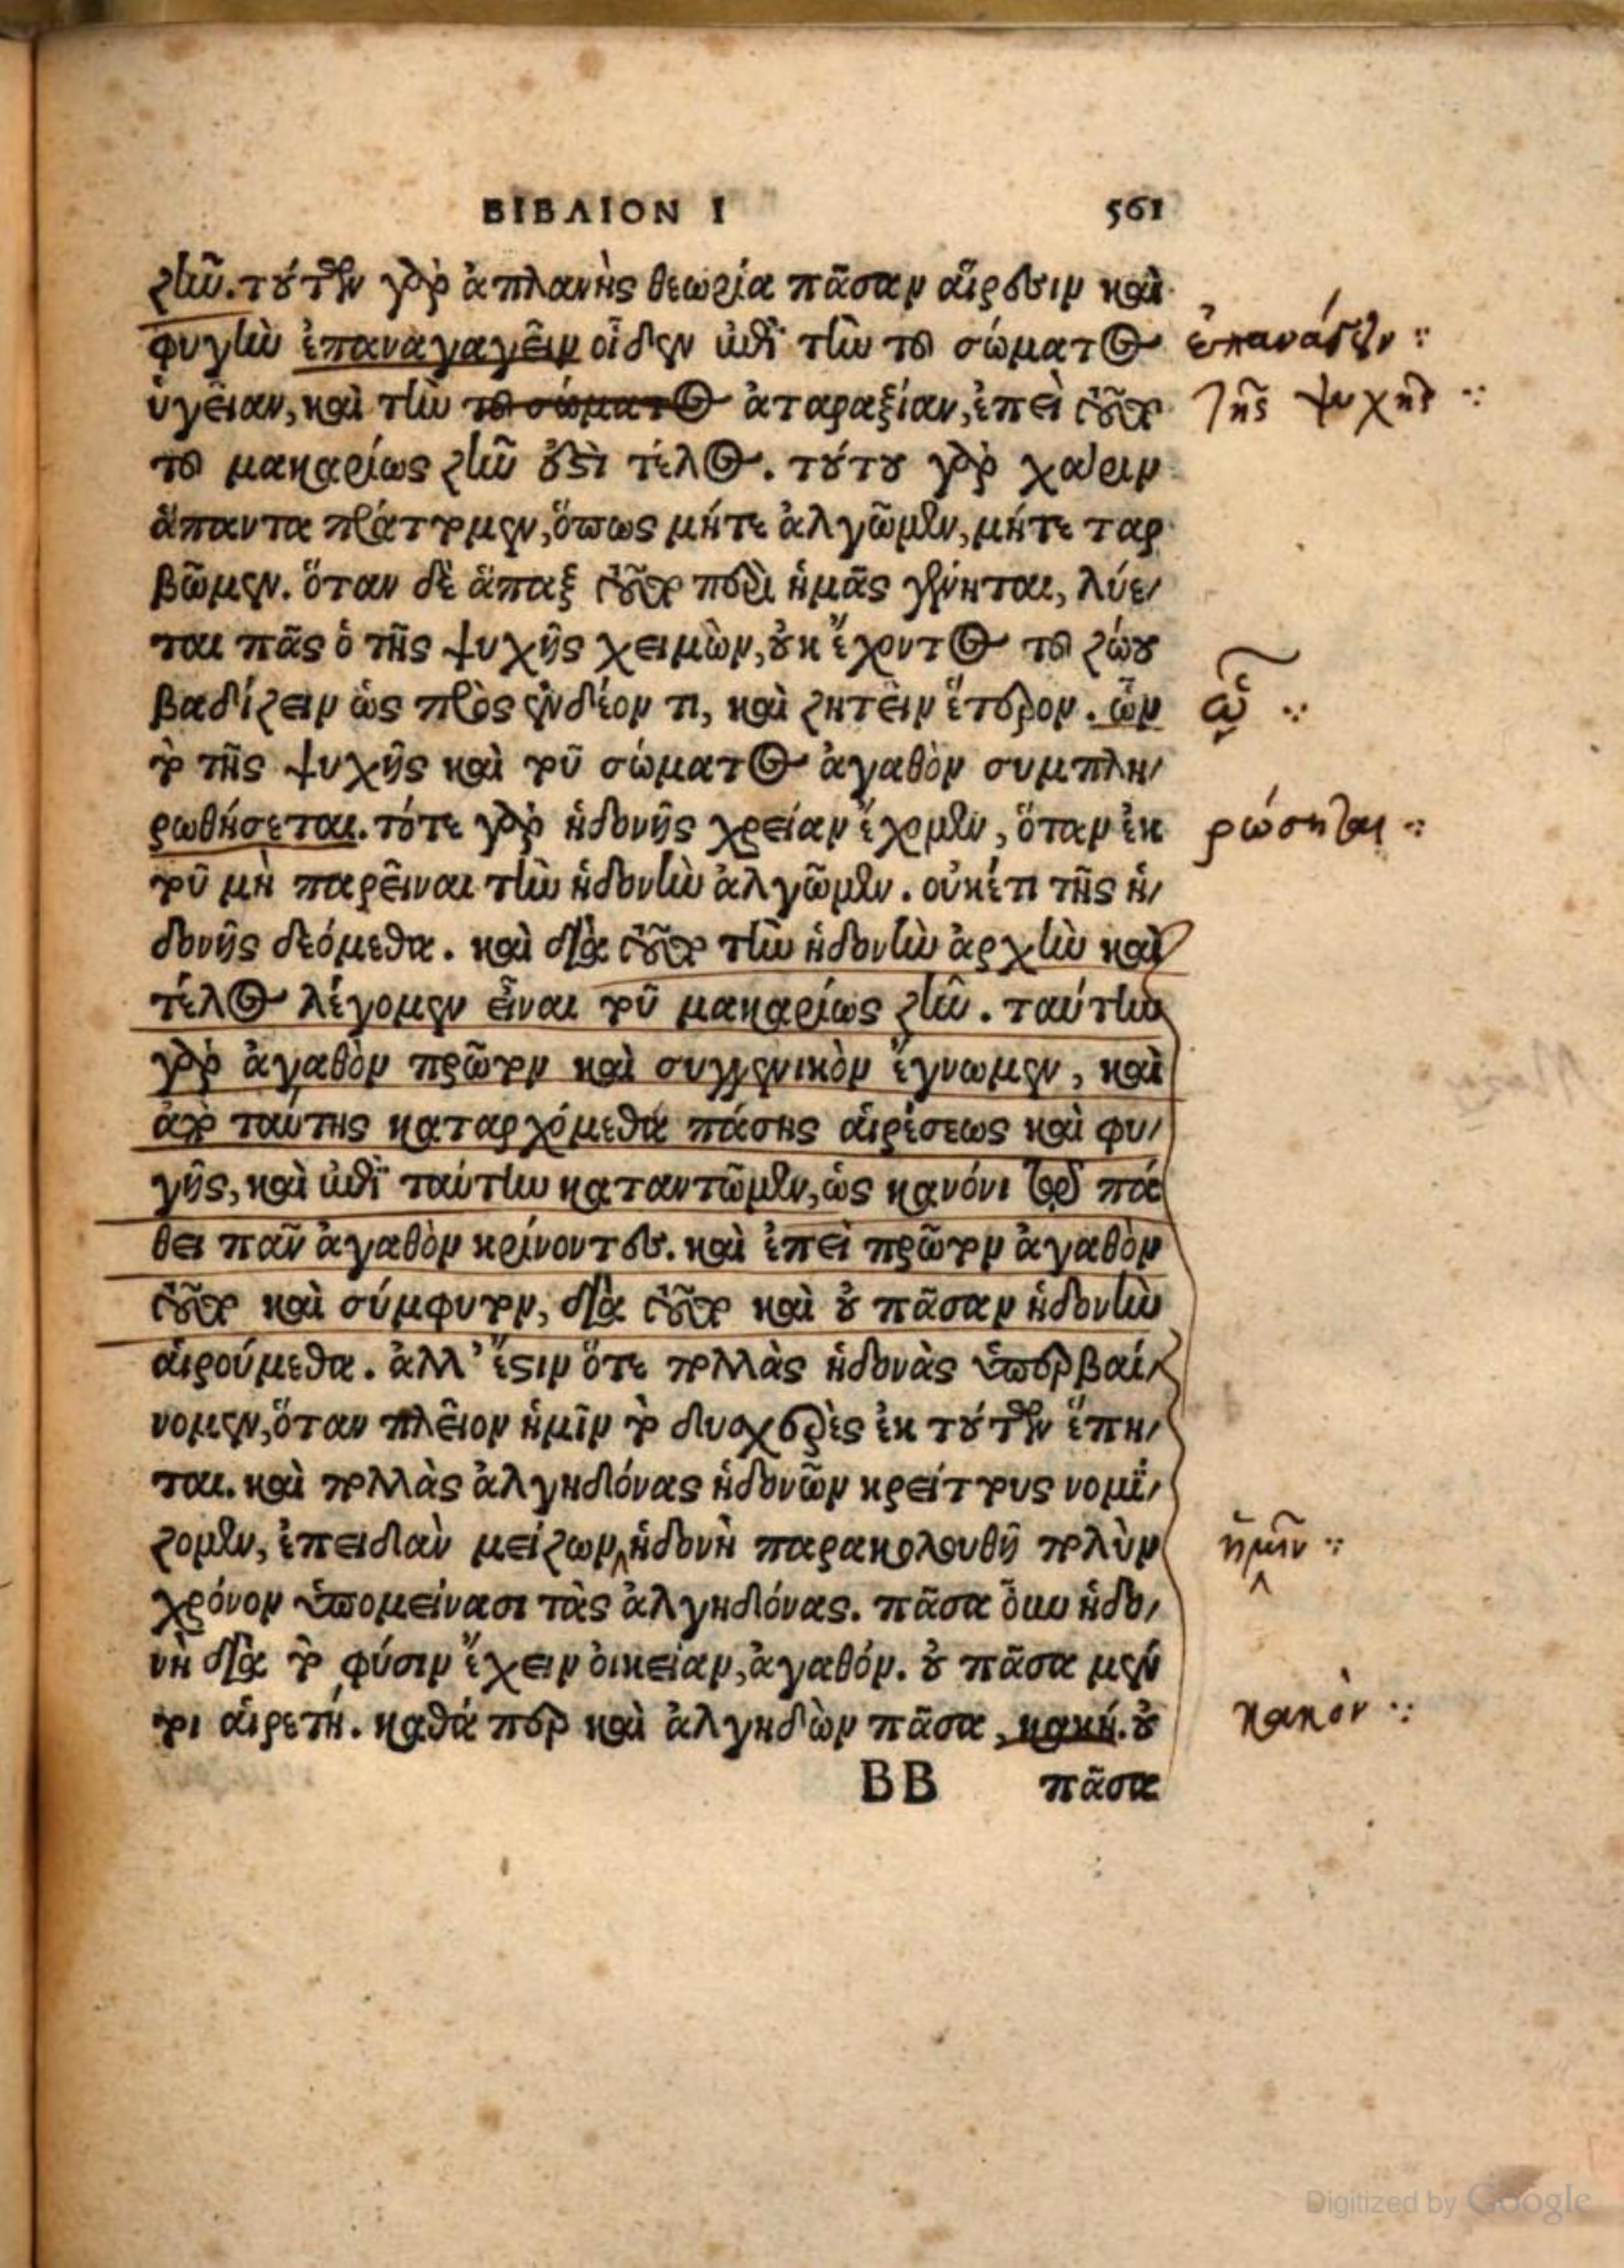 ΒΙΒΛΙΟΝ Ι 561
ζῆν. τούτων γὰρ ἀπλανὴς θεωρία πᾶσαν αἵρεσιν καὶ
φυγὴν ἐπαναγαγεῖν οἶδεν ἐπὶ τὴν τοῦ σώματος
ὑγείαν, καὶ τὴν τοῦ σώματος ἀταραξίαν, ἐπεὶ τοῦτο
τοῦ μακαρίως ζῆν ἐστὶ τέλος. τούτου γὰρ χάριν
ἅπαντα πράττομεν, ὅπως μήτε ἀλγῶμεν, μήτε ταρ
βῶμεν. ὅταν δὲ ἅπαξ τοῦτο περὶ ἡμᾶς γένηται, λύε-
ται πᾶς ὁ τῆς ψυχῆς χειμὼν, οὐκ ἔχοντος τοῦ ζώου
βαδίζειν ὡς πρὸς ἐνδέον τι, καὶ ζητεῖν ἕτερον. ὧν
τὸ τῆς ψυχῆς καὶ τοῦ σώματος ἀγαθὸν συμπλη-
ρωθήσεται. τότε γὰρ ἡδονῆς χρείαν ἔχομεν, ὅταν ἐκ
τοῦ μὴ παρεῖναι τὴν ἡδονὴν ἀλγῶμεν. οὐκέτι τῆς ἡ-
δονῆς δεόμεθα. καὶ διὰ τοῦτο τὴν ἡδονὴν ἀρχὴν καὶ
τέλος λέγομεν εἶναι τοῦ μακαρίως ζῆν. ταύτην
γὰρ ἀγαθὸν πρῶτον καὶ συγγενικὸν ἔγνωμεν, καὶ
ἀπὸ ταύτης καταρχόμεθα πάσης αἱρέσεως καὶ φυ-
γῆς, καὶ ἐπὶ ταύτην καταντῶμεν, ὡς κανόνι τῷ πά
θει πᾶν ἀγαθὸν κρίνοντες. καὶ ἐπεὶ πρῶτον ἀγαθὸν
τοῦτο καὶ σύμφυτον, διὰ τοῦτο καὶ οὐ πᾶσαν ἡδονὴν
αἱρούμεθα. ἀλλ' ἔστιν ὅτε πολλὰς ἡδονὰς ὑπερβαί-
νομεν, ὅταν πλεῖον ἡμῖν τὸ δυσχερὲς ἐκ τούτων ἕπη-
ται. καὶ πολλὰς ἀλγηδόνας ἡδονῶν κρείττους νομί-
ζομεν, ἐπειδὰν μείζων ἡδονὴ παρακολουθῇ πολὺν
χρόνον ὑπομείνασι τὰς ἀλγηδόνας. πᾶσα οὖν ἡδο-
νὴ διὰ τὸ φύσιν ἔχειν οἰκείαν, ἀγαθόν. οὐ πᾶσα μέν
τοι αἱρετή. καθάπερ καὶ ἀλγηδὼν πᾶσα, κακή. οὐ
ΒΒ πᾶσα
τῆς ψυχῆς
ᾧ
ρώσηται
ἡμῖν
κακόν
Digitized by Google